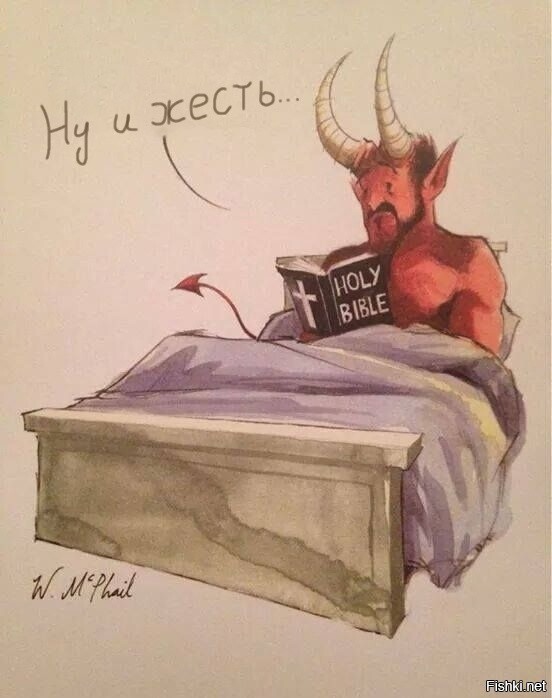 Ну и жесть...
HOLY
BIBLE
W. McPhail
Fishki.net